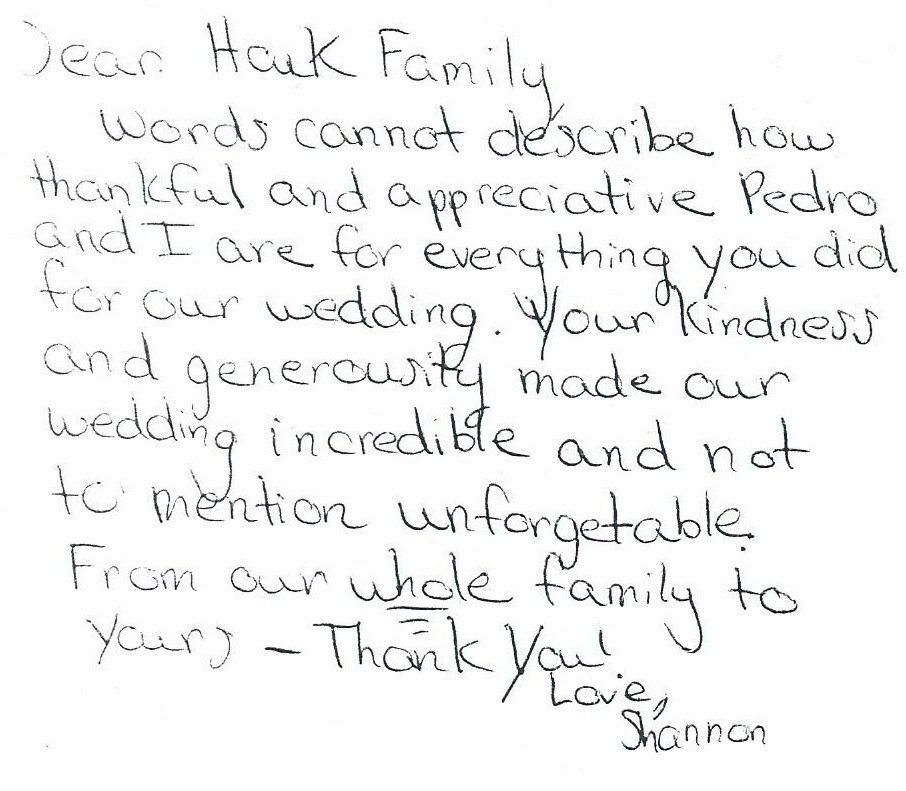 Dear Hauk Family
Words cannot describe how
thankful and appreciative Pedro
and I are for everything you did
for our wedding. Your kindness
and generousity made our
wedding incredible and not
to mention unforgetable.
From our whole family to
yours – Thank You!
Love,
Shannon